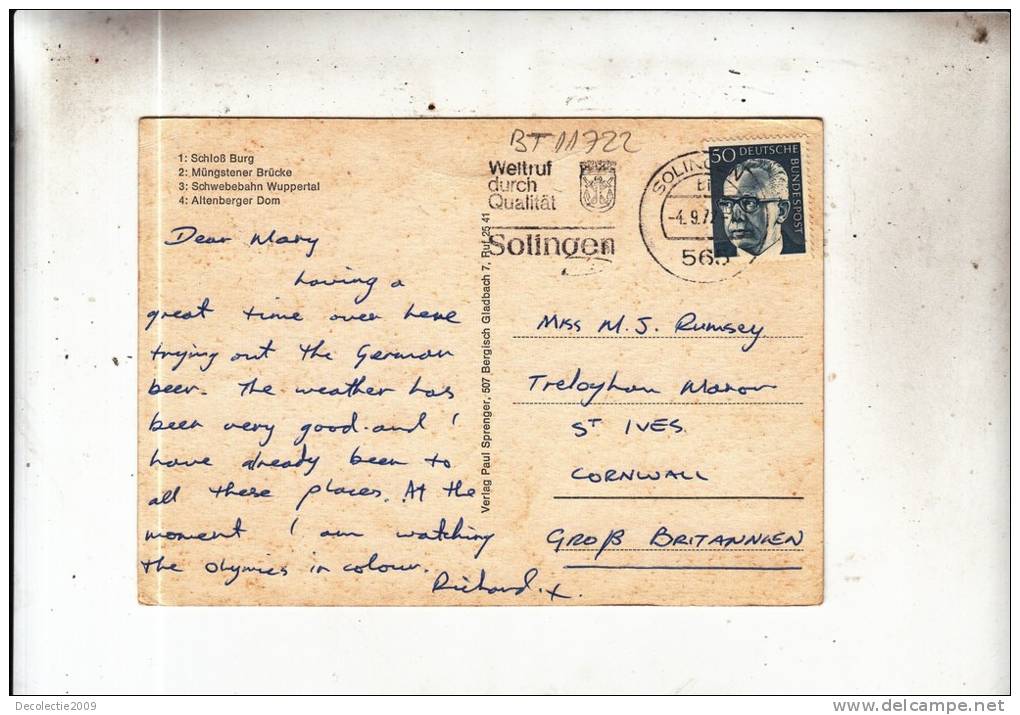 BT 11722
1: Schloß Burg
2: Müngstener Brücke
3: Schwebebahn Wuppertal
4: Altenberger Dom
Weltruf
durch
Qualität
Solingen
SOLING
-4.9.72
565
50 DEUTSCHE
BUNDESPOST
Dear Mary
having a
great time over here
trying out the German
beer. The weather has
been very good and I
have already been to
all these places. At the
moment I am watching
the olymics in colour.
Richard. x.
Verlag Paul Sprenger, 507 Bergisch Gladbach 7, Ruf 25 41
Miss M. J. Rumsey
Treloyhan Manor
ST IVES
CORNWALL
GROß BRITANNIEN
Decolectie2009
www.delcampe.net